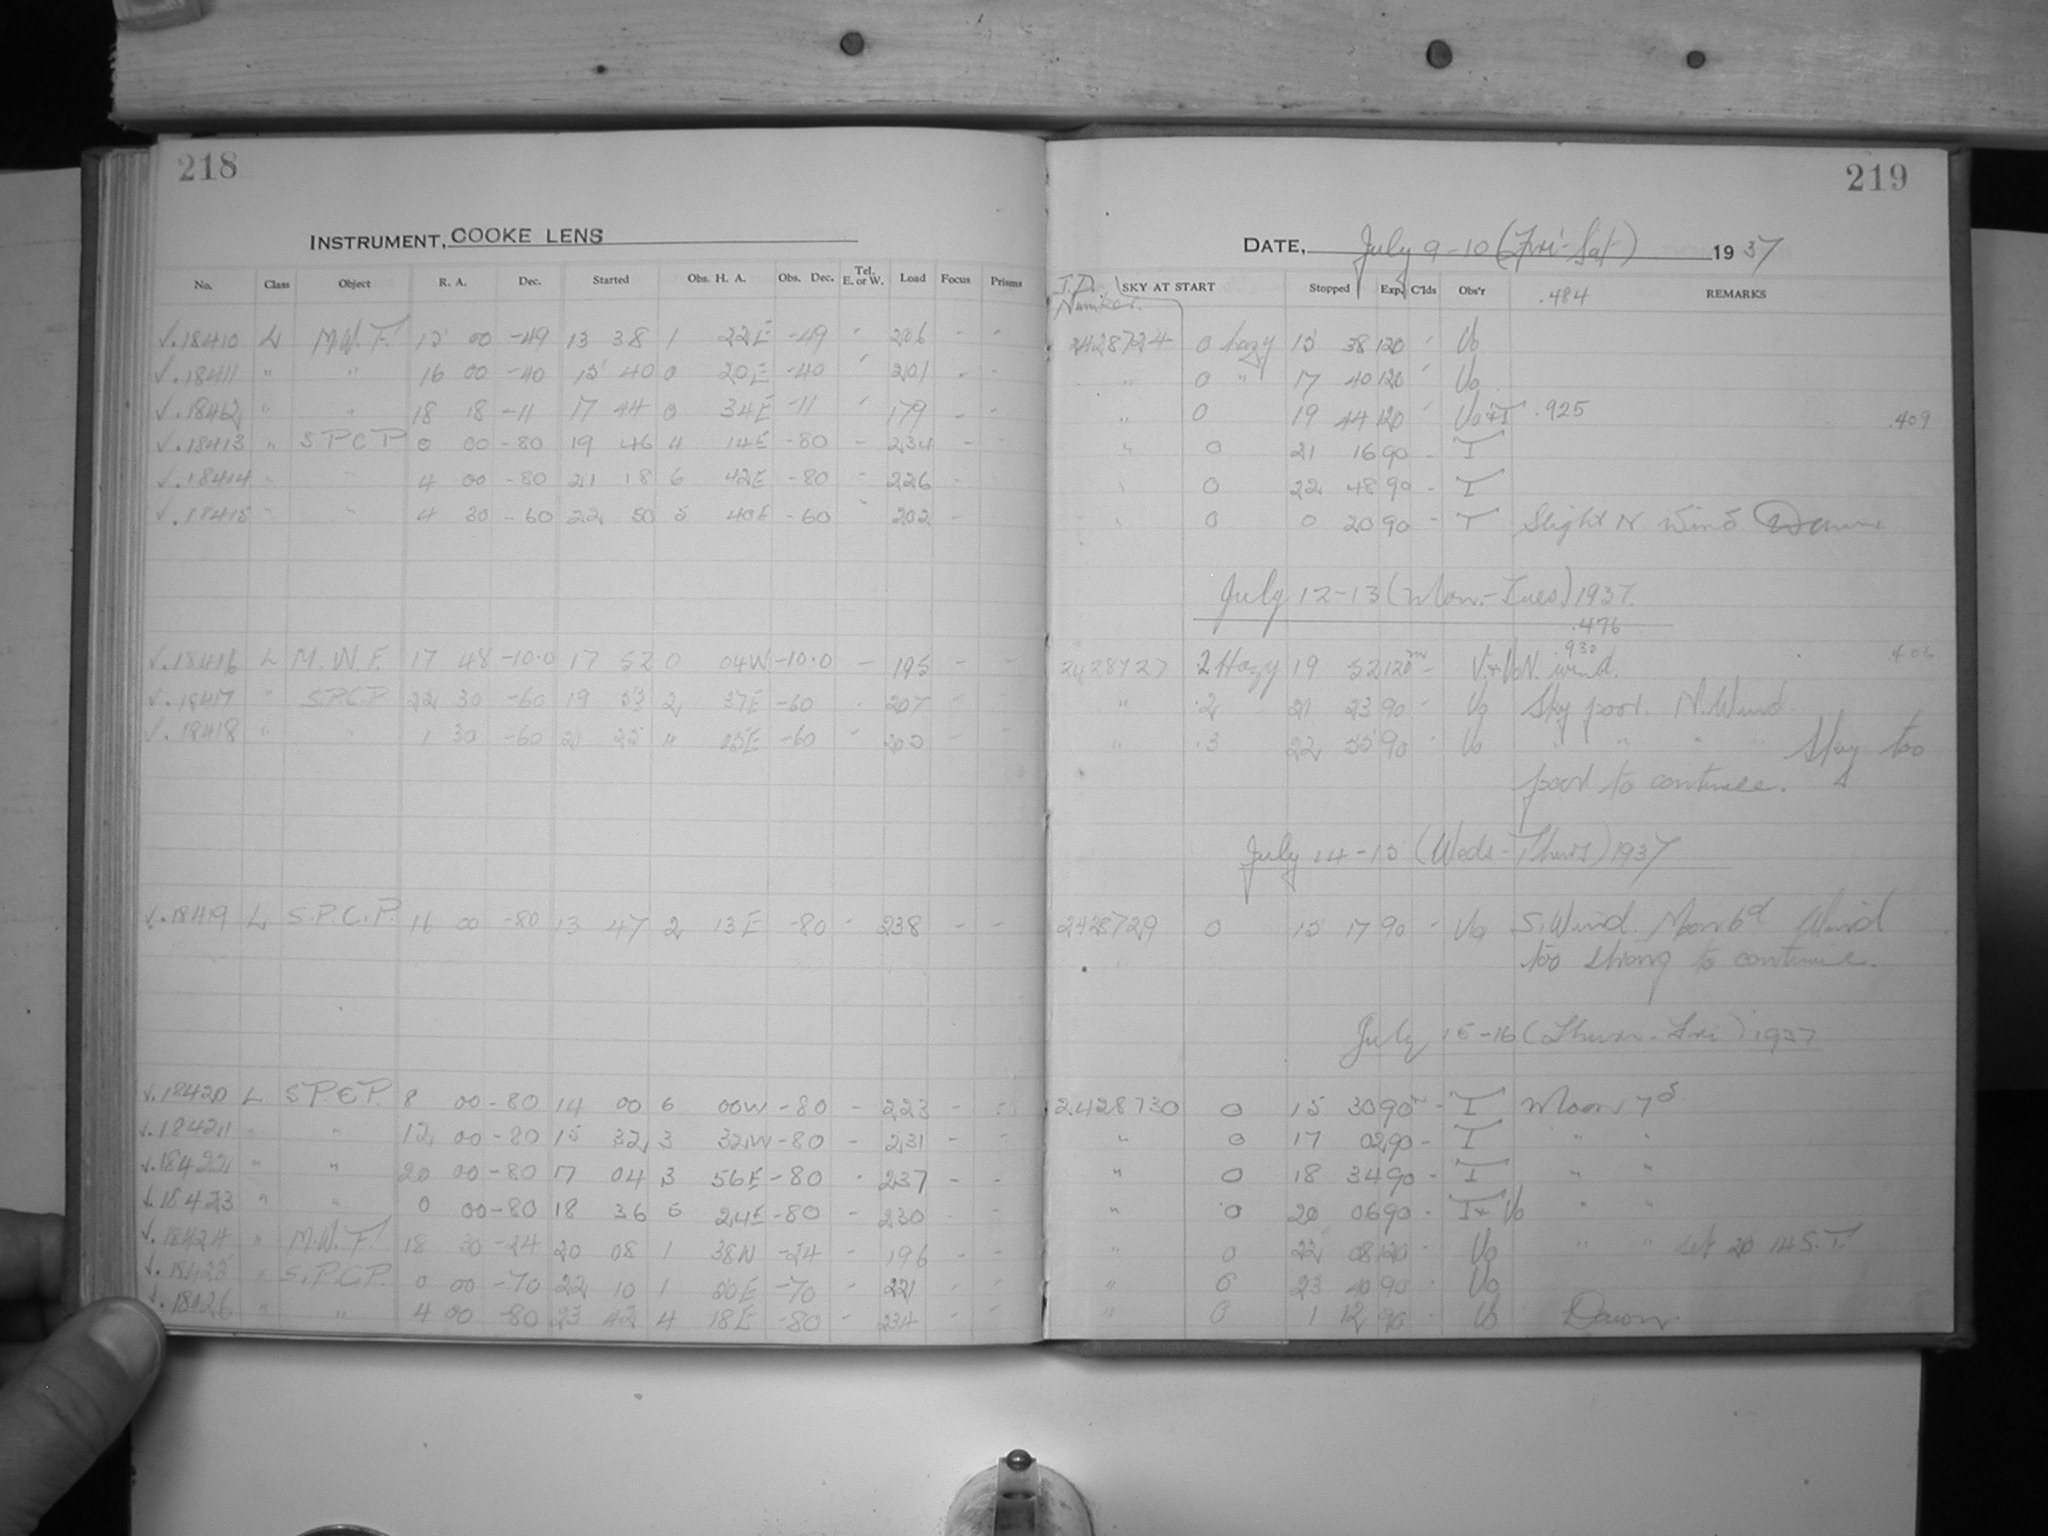 218
INSTRUMENT, COOKE LENS
No. Class Object R. A. Dec. Started Obs. H. A. Obs. Dec. Tel. E. or W. Load Focus Prisms
√.18410 L M.W.F. 15 00 -49 13 38 1 22E -49 " 206 - -
√.18411 " " 16 00 -40 15 40 0 20E -40 " 201 - -
√.18412 " " 18 18 -11 17 44 0 34E -11 " 179 - -
√.18413 " S.P.C.P. 0 00 -80 19 46 4 14E -80 - 234 - -
√.18414 " " 4 00 -80 21 18 6 42E -80 - 226 - -
√.18415 " " 4 30 -60 22 50 5 40E -60 - 202 -
√.18416 L M.W.F. 17 48 -10.0 17 52 0 04W -10.0 - 195 - -
√.18417 " S.P.C.P 22 30 -60 19 53 2 37E -60 - 207 - -
√.18418 " " 1 30 -60 21 25 4 05E -60 - - -
√.18419 L S.P.C.P. 16 00 -80 13 47 2 13E -80 - 238 - -
√.18420 L S.P.C.P. 8 00 -80 14 00 6 00W -80 - 223 - -
√.18421 " " 12 00 -80 15 32 3 32W -80 - 231 - -
√.18422 " " 20 00 -80 17 04 3 56E -80 - 237 - -
√.18423 " " 0 00 -80 18 36 5 24E -80 - 230 - -
√.18424 " M.W.F. 18 30 -24 20 08 1 38W -24 - 196 - -
√.18425 " S.P.C.P. 0 00 -70 22 10 1 50E -70 - 221 - -
√.18426 " " 4 00 -80 23 42 4 18E -80 - 234 - -
219
DATE, July 9-10 (Fri-Sat) 1937
J.D. Number. SKY AT START Stopped Exp. C'lds Obs'r .484 REMARKS
2428724 0 hazy 15 38 120 - Vo
" 0 " 17 40 120 - Vo
" 0 19 44 120 - Vo+T .925 .409
" 0 21 16 90 - T
" 0 22 48 90 - T
" 0 0 20 90 - T Slight N wind Dawn
July 12-13 (Mon.-Tues.) 1937.
.476
.930
2428727 2 Hazy 19 52 120m - T.+Vo N. wind.
" .2 21 23 90 - Vo Sky poor. N. Wind.
" .3 22 55 90 - Vo " " " " Sky too
poor to continue.
July 14-15 (Weds-Thurs) 1937
2428729 0 15 17 90 - Vo S. Wind. Moon 6d Wind
too strong to continue.
July 15-16 (Thurs-Fri) 1937
2428730 0 15 30 90m - T Moon 7d
" 0 17 02 90 - T " "
" 0 18 34 90 - T " "
" 0 20 06 90 - T+Vo " "
" 0 22 08 120 - Vo " " set 20 14 S.T.
" 0 23 40 90 - Vo
" 0 1 12 90 - Vo Dawn